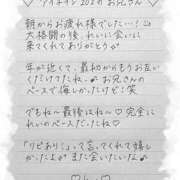 ♡ ツイキャス 202の お兄さん ♡
朝からお疲れ様でした…!
大格闘の後、れいに会いに
来てくれてありがとう
年が近くて、最初からもうお互い
くだけてたね♪ お兄さんの
ペースで悔しかったけど！笑
でもね〜最後はね〜♡ 完全に
れいのペースだったね♡
「リピあり♡」って言ってくれて嬉し
かったよ また会いたいな♪